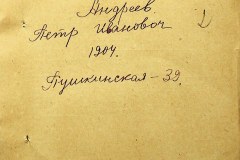 Андреев
Петр Иванович
1904.
Пушкинская - 39.